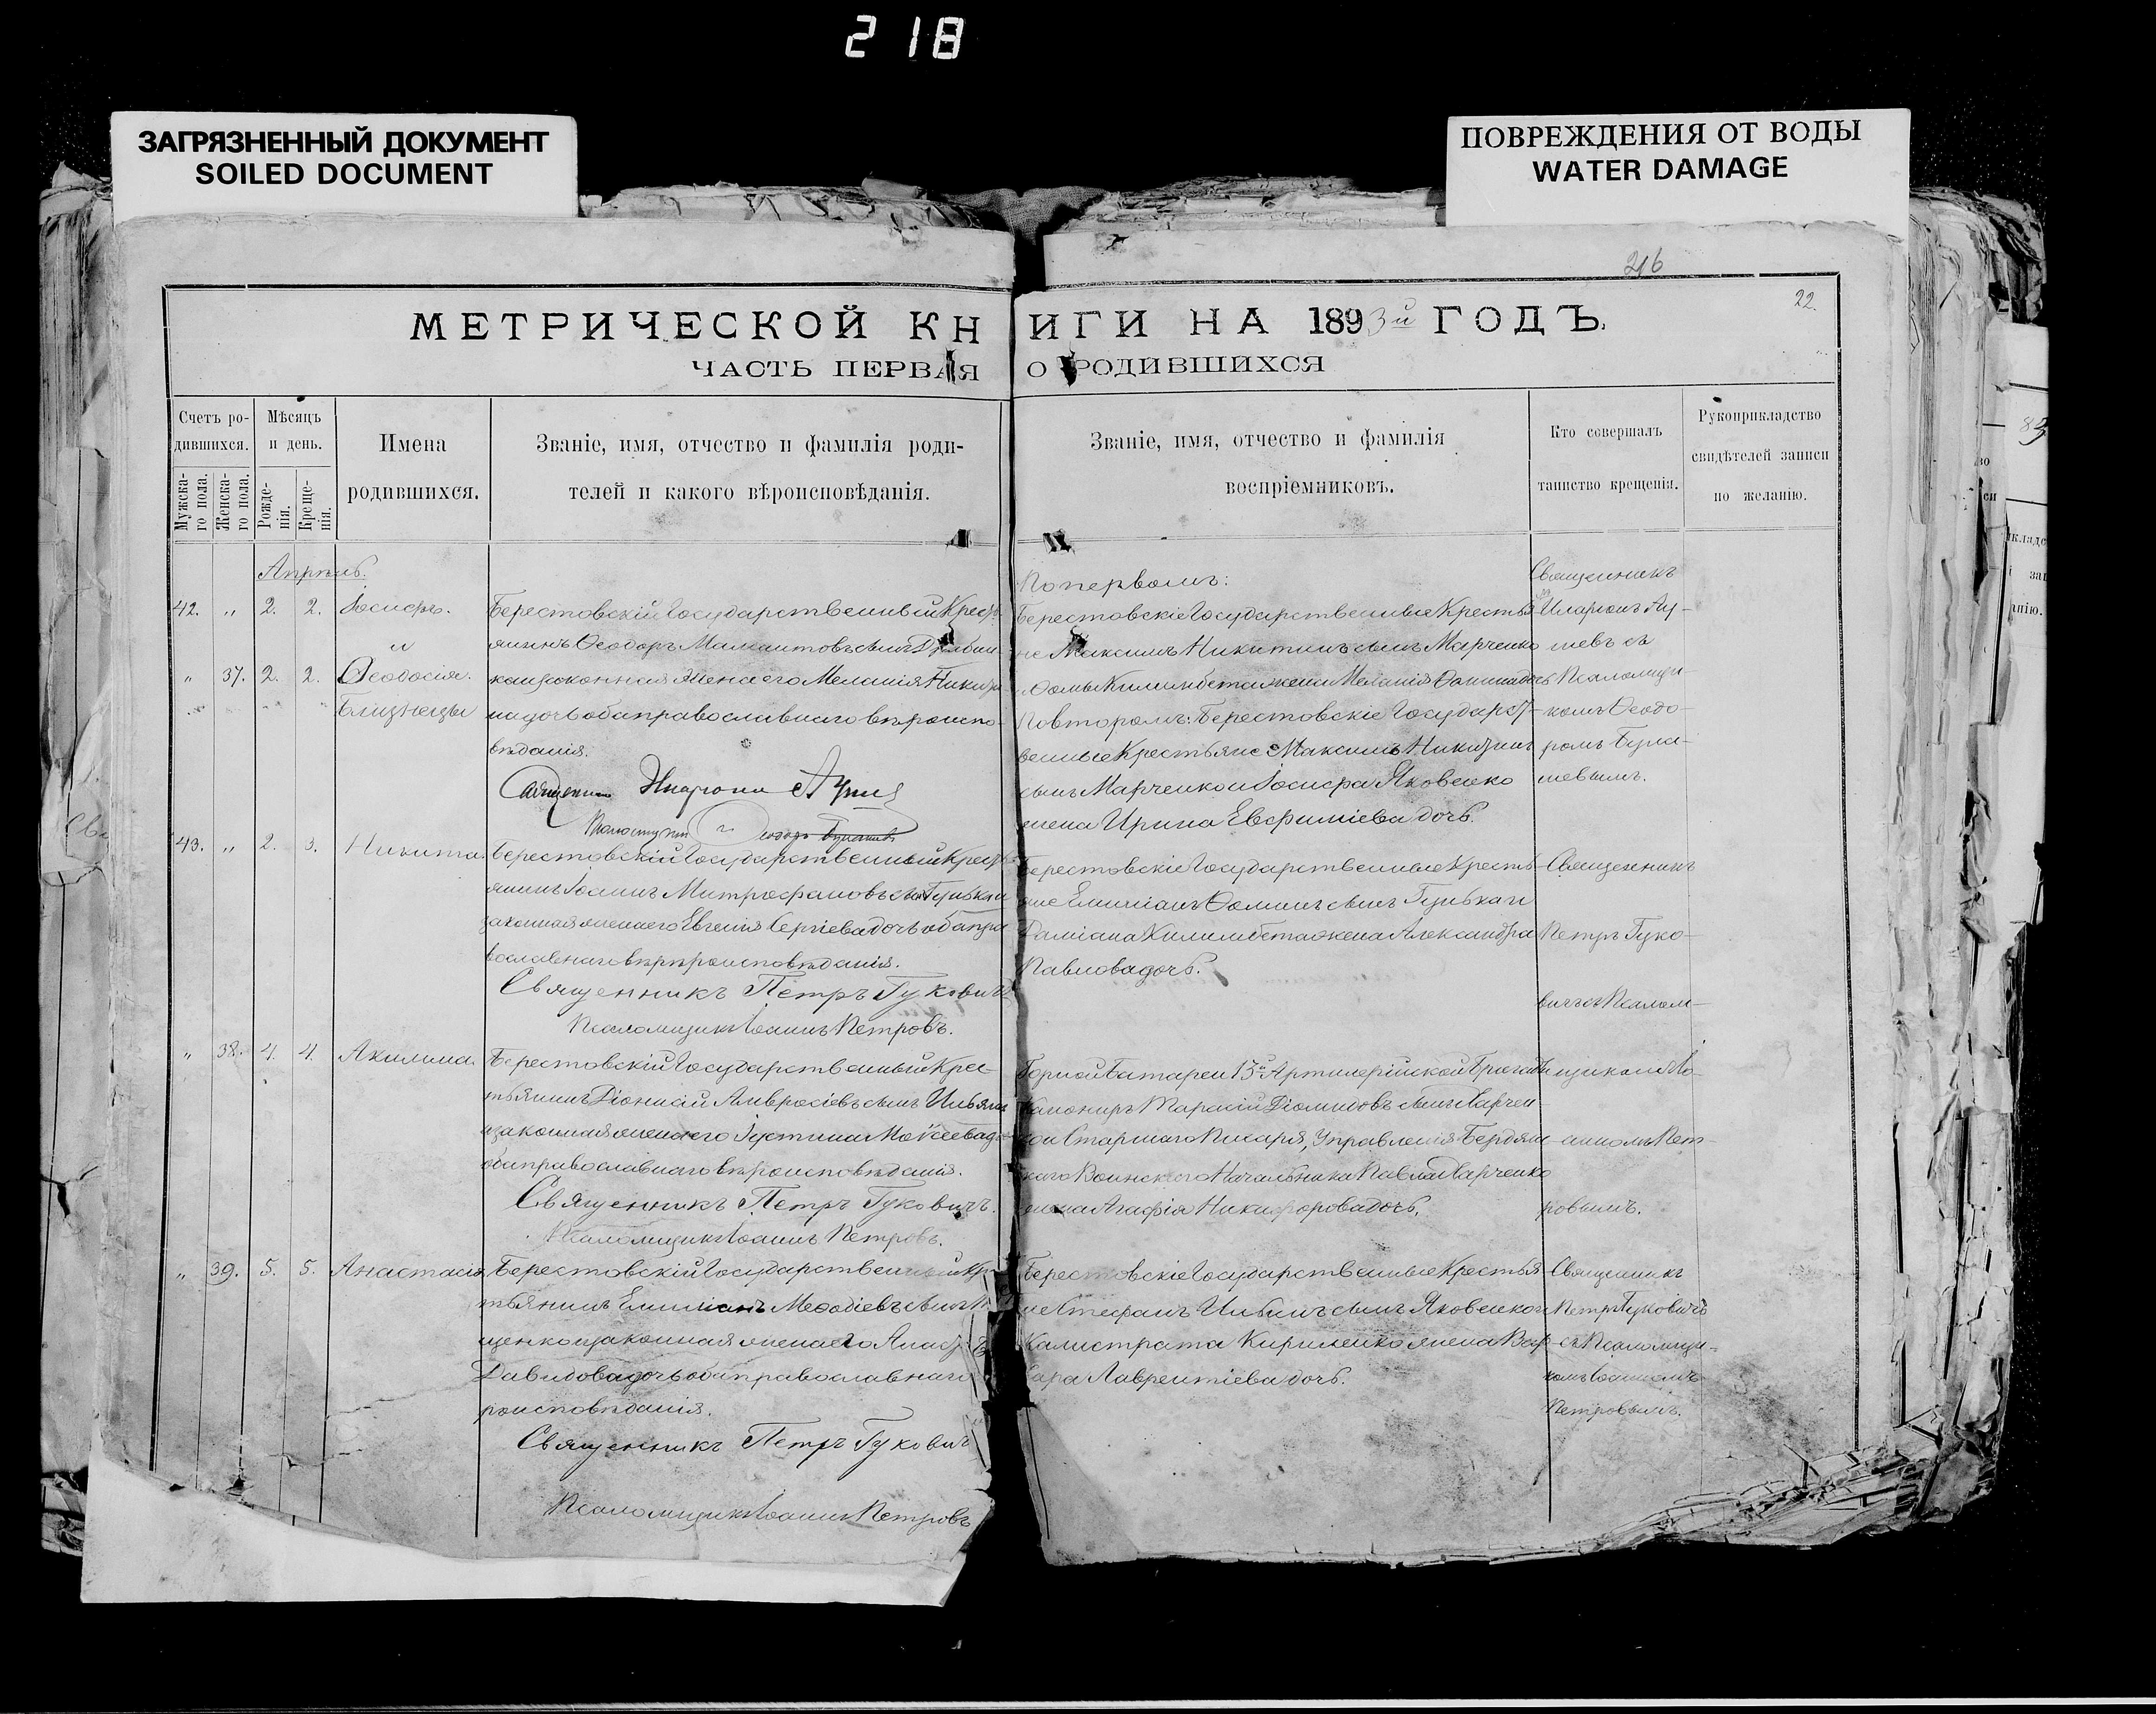 218
ЗАГРЯЗНЕННЫЙ ДОКУМЕНТ
SOILED DOCUMENT
ПОВРЕЖДЕНИЯ ОТ ВОДЫ
WATER DAMAGE
216
22.
МЕТРИЧЕСКОЙ КНИГИ НА 1893й ГОДЪ.
ЧАСТЬ ПЕРВАЯ О РОДИВШИХСЯ
Счетъ родившихся.
Мужска-го пола.
Женска-го пола.
Мѣсяцъ и день.
Рожде-нія.
Креще-нія.
Имена родившихся.
Званіе, имя, отчество и фамилія роди-
телей и какого вѣроисповѣданія.
Званіе, имя, отчество и фамилія
воспріемниковъ.
Кто совершалъ
таинство крещенія.
Рукоприкладство
свидѣтелей записи
по желанію.
Апрѣль.
42. „ 2. 2. Іосифъ.
и
„ 37. 2. 2. Ѳеодосія.
Близнецы
Берестовскій Государственный Крест-
янинъ Ѳеодоръ Мамантовъ сынъ
законная жена его Меланія Никити-
на дочь оба православнаго вѣроиспо-
вѣданія.
Священникъ Иларіонъ
По первомъ:
Берестовскіе Государственные Крестья-
не Максимъ Никитинъ сынъ Марченко
Ѳомы Килимбета жена Меланія дочь
По второмъ: Берестовскіе Государст-
венные Крестьяне Максимъ Никитинъ
сынъ Марченко и Іосифа Яковенко
жена Ирина Евфиміева дочь.
Священникъ
Иларіонъ
съ
Псаломщи-
комъ Ѳеодо-
ромъ
43. „ 2. 3. Никита.
Берестовскій Государственный Крест-
янинъ Іоаннъ Митрофановъ сынъ Гунька и
законная жена его Евгенія Сергіева дочь оба пра-
вославнаго вѣроисповѣданія.
Священникъ Петръ Гуковичъ
Псаломщикъ Іоаннъ Петровъ.
Берестовскіе Государственные Кресть-
яне Емиліанъ Ѳоминъ сынъ Гунька и
Даміана Килимбета жена Александра
Павлова дочь.
Священникъ
Петръ Гуко-
вичъ съ Псалом-
щикомъ Іо-
анномъ Пет-
ровымъ.
„ 38. 4. 4. Акилина.
Берестовскій Государственный Крес-
тьянинъ Діонисій Амвросіевъ сынъ
и законная жена его Іустина Моѵсеева до
оба православнаго вѣроисповѣданія.
Священникъ Петръ Гуковичъ.
Псаломщикъ Іоаннъ Петровъ.
Горной Батареи 13й Артилерійской Бригады
Канониръ Тарасій Діомидовъ сынъ Харчен-
ко и Старшаго Писаря, Управленія Бердян-
скаго Воинскаго Начальника Павла Харченко
жена Агафія Никифорова дочь.
„ 39. 5. 5. Анастасія
Берестовскій Государственный Крес-
тьянинъ Емиліанъ Меѳодіевъ сынъ
щенко и законная жена его
Давидова дочь оба православнаго
роисповѣданія.
Священникъ Петръ Гукович
Псаломщикъ Іоаннъ Петровъ
Берестовскіе Государственные Крестья-
не Стефанъ сынъ Яковенко и
Калистрата Кириленко жена Вар-
вара Лаврентіева дочь.
Священникъ
Петръ Гуковичъ
съ Псаломщи-
комъ Іоанномъ
Петровымъ.